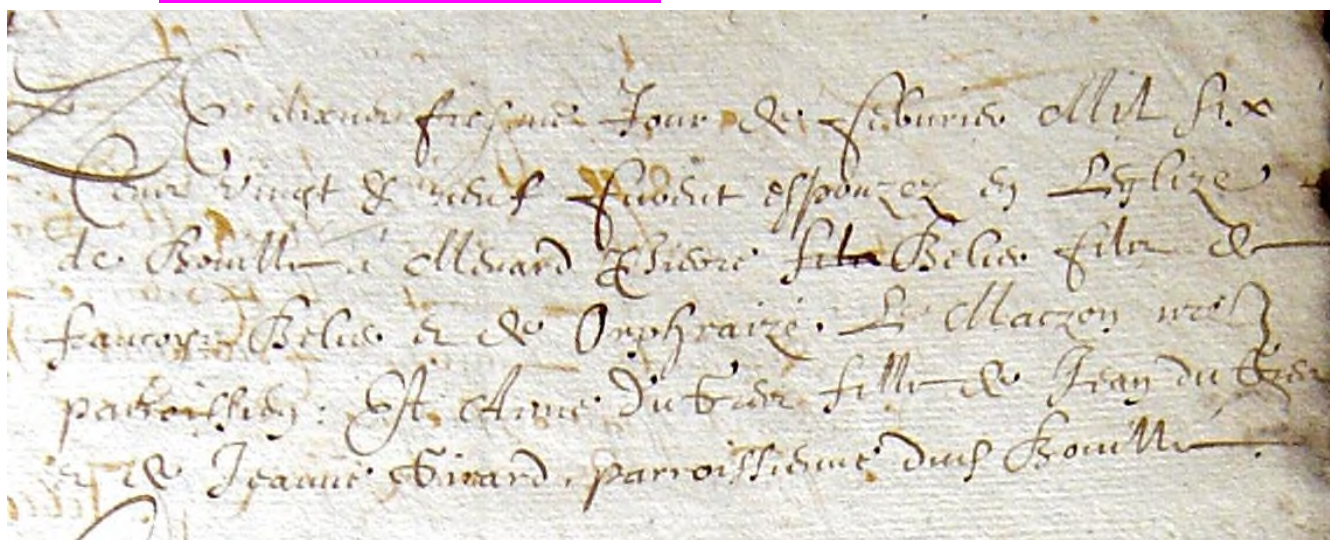 Le dixneufiesme Jour de febvrier Mil six
Cent vingt & neuf furent espouzez en Leglize
de Bouille Menard Pierre Belier filz de
francoys Belier et de Orphraize Le Maczon nre
parroissien. Et Anne Du Grée fille de Jean du Grée
et de Jeanne Girard, parroissienne dud Bouille.